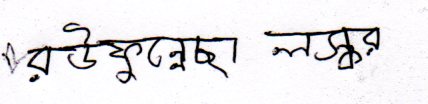 রউফুন্নেছা লস্কর